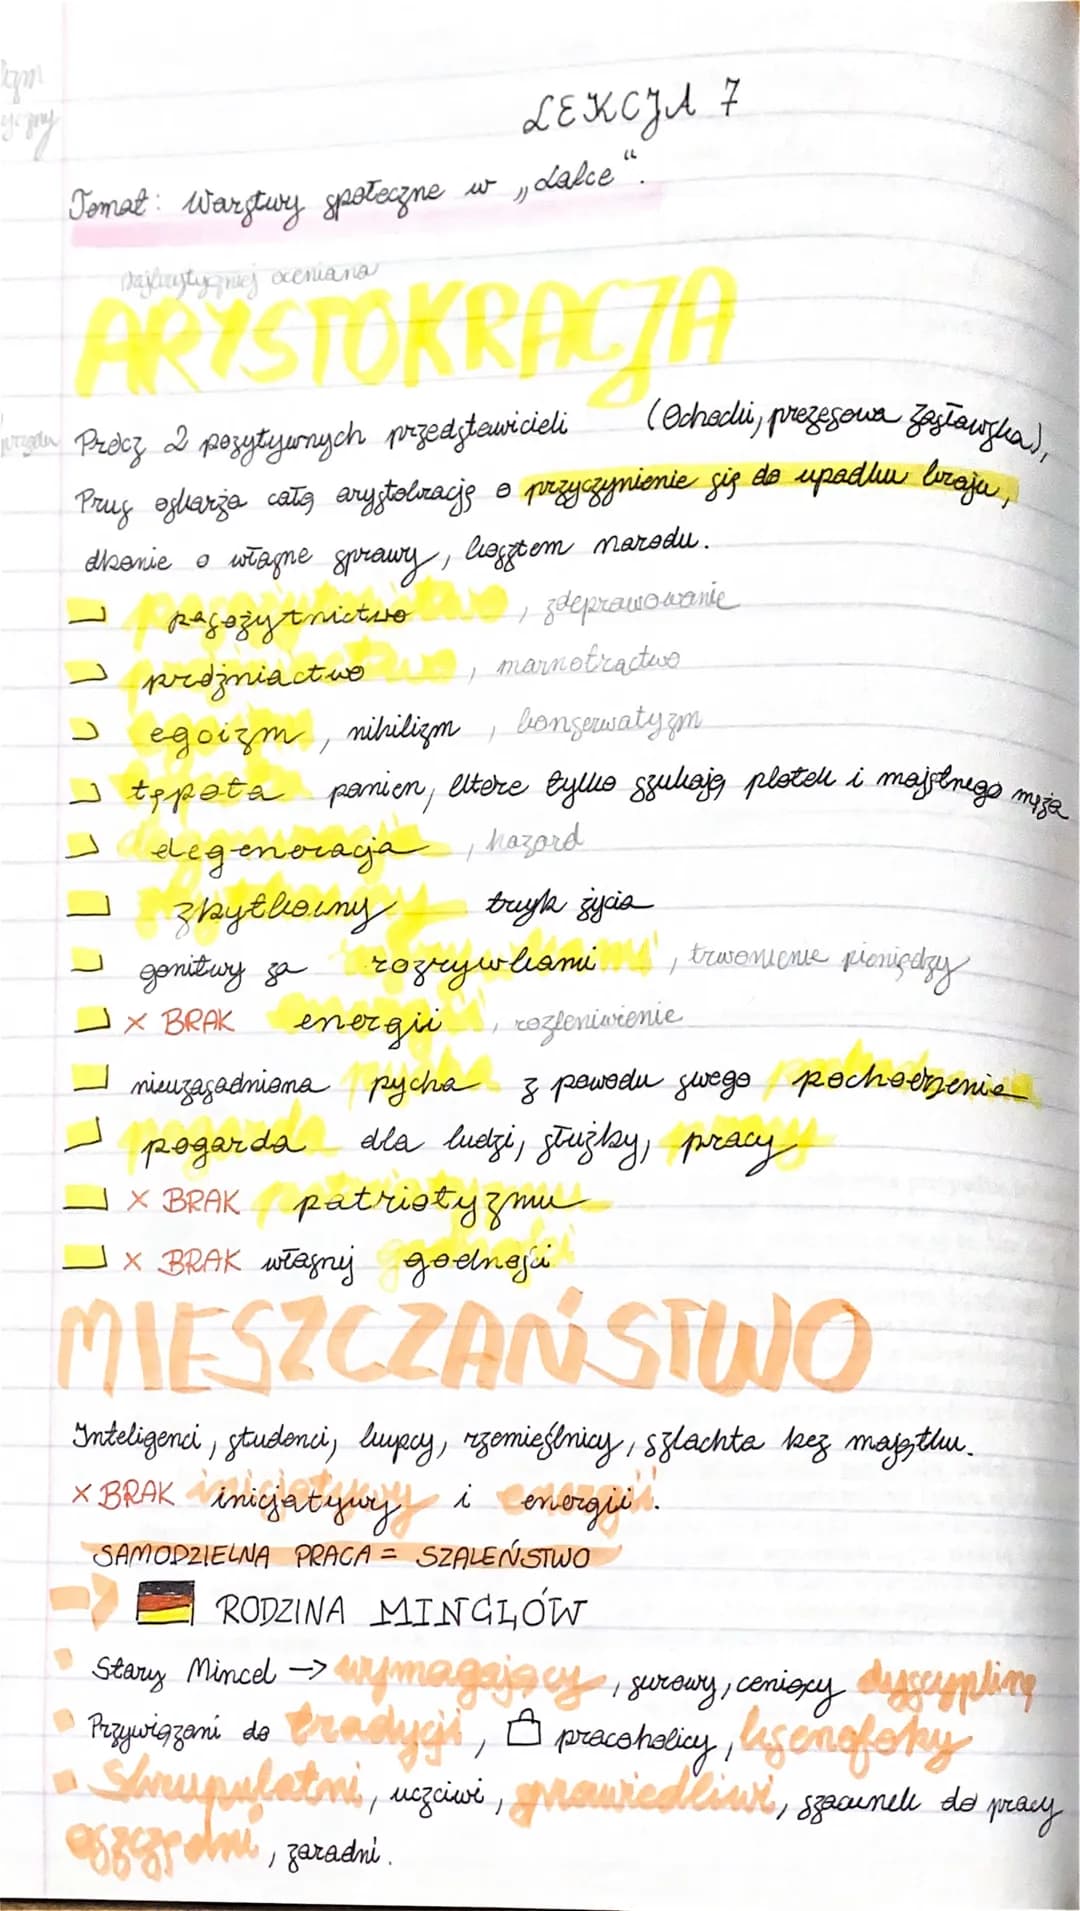 LEKCJA 7
Temat: Warstwy społeczne w „Lalce“.
Najkrytyczniej oceniana
ARYSTOKRACJA
Prócz 2 pozytywnych przedstawicieli (Ochocki, prezesowa Zasławska),
Prus oskarża całą arystokrację o przyczynienie się do upadku kraju,
dbanie o własne sprawy, kosztem narodu.
pasożytnictwo, zdeprawowanie
próżniactwo, marnotractwo
egoizm, nihilizm, konserwatyzm
tępota panien, które tylko szukają plotek i majętnego męża
degeneracja, hazard
zbytkowny tryb życia
gonitwy za rozrywkami, trwonienie pieniędzy
x BRAK energii, rozleniwienie
nieuzasadniona pycha z powodu swego pochodzenia
pogarda dla ludzi, służby, pracy
x BRAK patriotyzmu
x BRAK własnej godności
MIESZCZAŃSTWO
Inteligenci, studenci, kupcy, rzemieślnicy, szlachta bez majątku.
x BRAK inicjatywy i energii.
SAMODZIELNA PRACA = SZALEŃSTWO
RODZINA MINCLÓW
Stary Mincel → wymagający, surowy, ceniący dyscyplinę
Przywiązani do tradycji, pracoholicy, ksenofoby
Skrupulatni, uczciwi, sprawiedliwi, szacunek do pracy
oszczędni, zaradni.